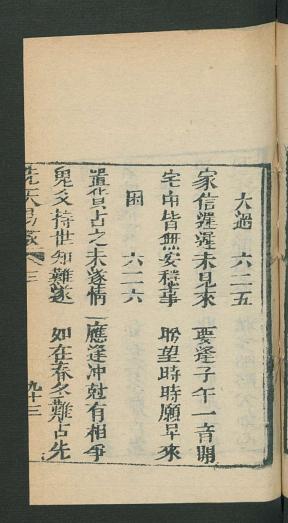 大過　六二五
家信遲遲未見來　要逢子午一音開
宅中皆無安穩事　盼望時時願早來
困　六二六
置貨占之未遂情　應逢沖尅有相爭
鬼爻持世知難遂　如在春冬難占先
先天易數　三　九十三